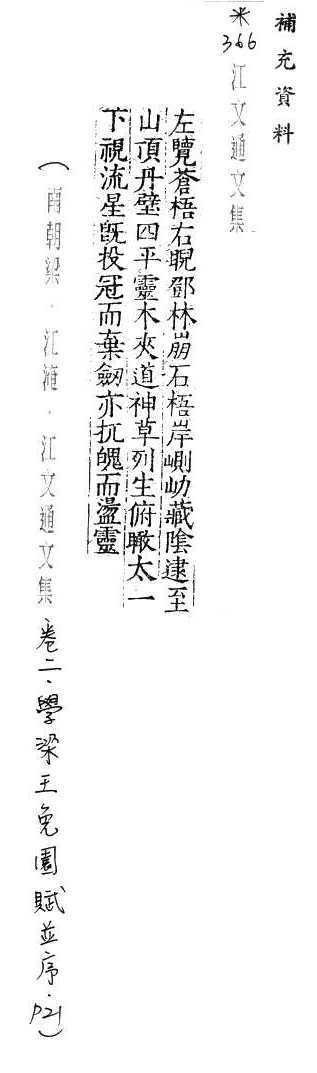 補充資料
※
366 江文通文集
左覽蒼梧右睨鄧林崩石梧岸崱屴藏陰逮至
山頂丹壁四平靈木夾道神草列生俯瞰太一
下視流星旣投冠而棄劒亦抗魄而盪靈
(南朝梁.江淹.江文通文集卷二.學梁王兔園賦並序.P21)